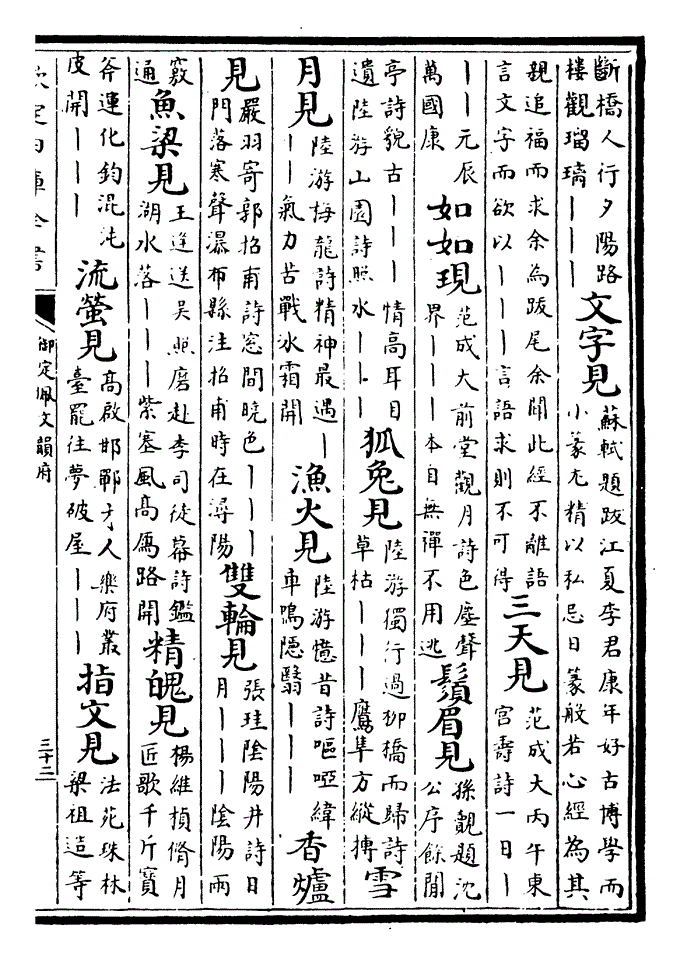 斷橋人行夕陽路
樓觀瑠璃丨丨丨
文字見
蘇軾題跋江夏李君康年好古博學而
小篆尤精以私忌日篆般若心經為其
親追福而求余為跋尾余聞此經不離語
言文字而欲以丨丨丨言語求則不可得
三天見
范成大丙午東
宮壽詩一日丨
丨丨元辰
萬國康
如如現
范成大前堂觀月詩色塵聲
界丨丨丨本自無禪不用逃
鬚眉見
孫覿題沈
公序餘閒
亭詩貌古丨丨丨情高耳目
遺陸游山園詩照水丨丨丨
狐兔見
陸游獨行過柳橋而歸詩
草枯丨丨丨鷹隼方縱摶
雪
月見
陸游梅龍詩精神最遇丨
丨丨氣力苦戰冰霜開
漁火見
陸游憶昔詩嘔啞緯
車鳴隱翳丨丨丨
香爐
見
嚴羽寄郭招甫詩窓間曉色丨丨丨
門落寒聲瀑布縣注招甫時在潯陽
雙輪見
張珪陰陽井詩日
月丨丨丨陰陽兩
竅
通
魚梁見
王逢送吳照磨赴李司徒幕詩鑑
湖水落丨丨丨紫塞風高鴈路開
精魄見
楊維楨脩月
匠歌千斤寶
斧運化鈞混沌
皮開丨丨丨
流螢見
高啟邯鄲才人樂府叢
臺罷往夢破屋丨丨丨
指文見
法苑珠林
梁祖造等
欽定四庫全書
御定佩文韻府
三十二